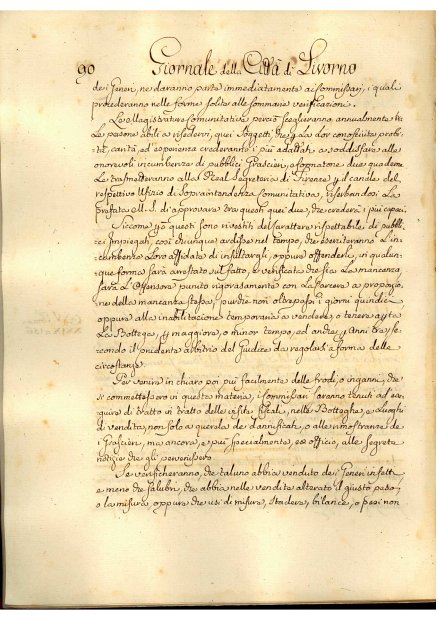 90 Giornale della Città di Livorno
dei Generi, ne daranno parte immediatamente ai Commissarj, i quali
procederanno nelle forme solite alle sommarie verificazioni.
Le Magistrature Comunitative perciò sceglieranno annualmente tra
Le persone abili a risedervi, quei soggetti, che p la lor conosciuta probi-
tà, carità, ed esperienza crederanno i più adattati a soddisfare alle
onorevoli incumbenze di pubblici Grascieri, e formatone due quaderne
Le trasmetteranno alla Real Segreteria di Firenze p il canale del
respettivo Ufizio di Sopraintendenza Comunitativa, riserbandosi La
prefata M.S. di approvare tra questi quei due, che crederà i più capaci.
Siccome poi questi sono rivestiti del carattere rispettabile di pubbli-
ci Impiegati, così chiunque ardisse nel tempo, che eserciteranno L'in-
cumbenza Loro affidata di insultargli, oppure offendergli, in qualun-
que forma sarà arrestato sul fatto, e verificata che sia La mancanza
sarà L'Offensore punito rigorosamente con La Carcere a proporzio-
ne della mancanza stessa, purchè non oltrepassi i giorni quindici
oppure alla inabilitazione temporaria a vendere, o tenere aperta
La Bottega, p maggiore, o minor tempo, ed anche p Anni tre se-
condo il prudente arbitrio del Giudice da regolarsi a forma delle
circostanze.
Per venire in chiaro poi più facilmente delle frodi, o inganni, che
si commettessero in questa materia, i Commissarj saranno tenuti ad ese-
guire di tratto in tratto delle visite fiscali, nelle Botteghe, e Luoghi
di vendita, non solo a querela dei dannificati, o alle rimostranze de-
i Grascieri, ma ancora, e più specialmente, ex officio, alle segrete
notizie che gli pervenissero
Se verificheranno, che taluno abbia venduto dei Generi infetti,
e meno che salubri, che abbia nelle vendite alterato il giusto peso,
o la misura, oppure che usi di misure, stadere, bilance, o pesi non